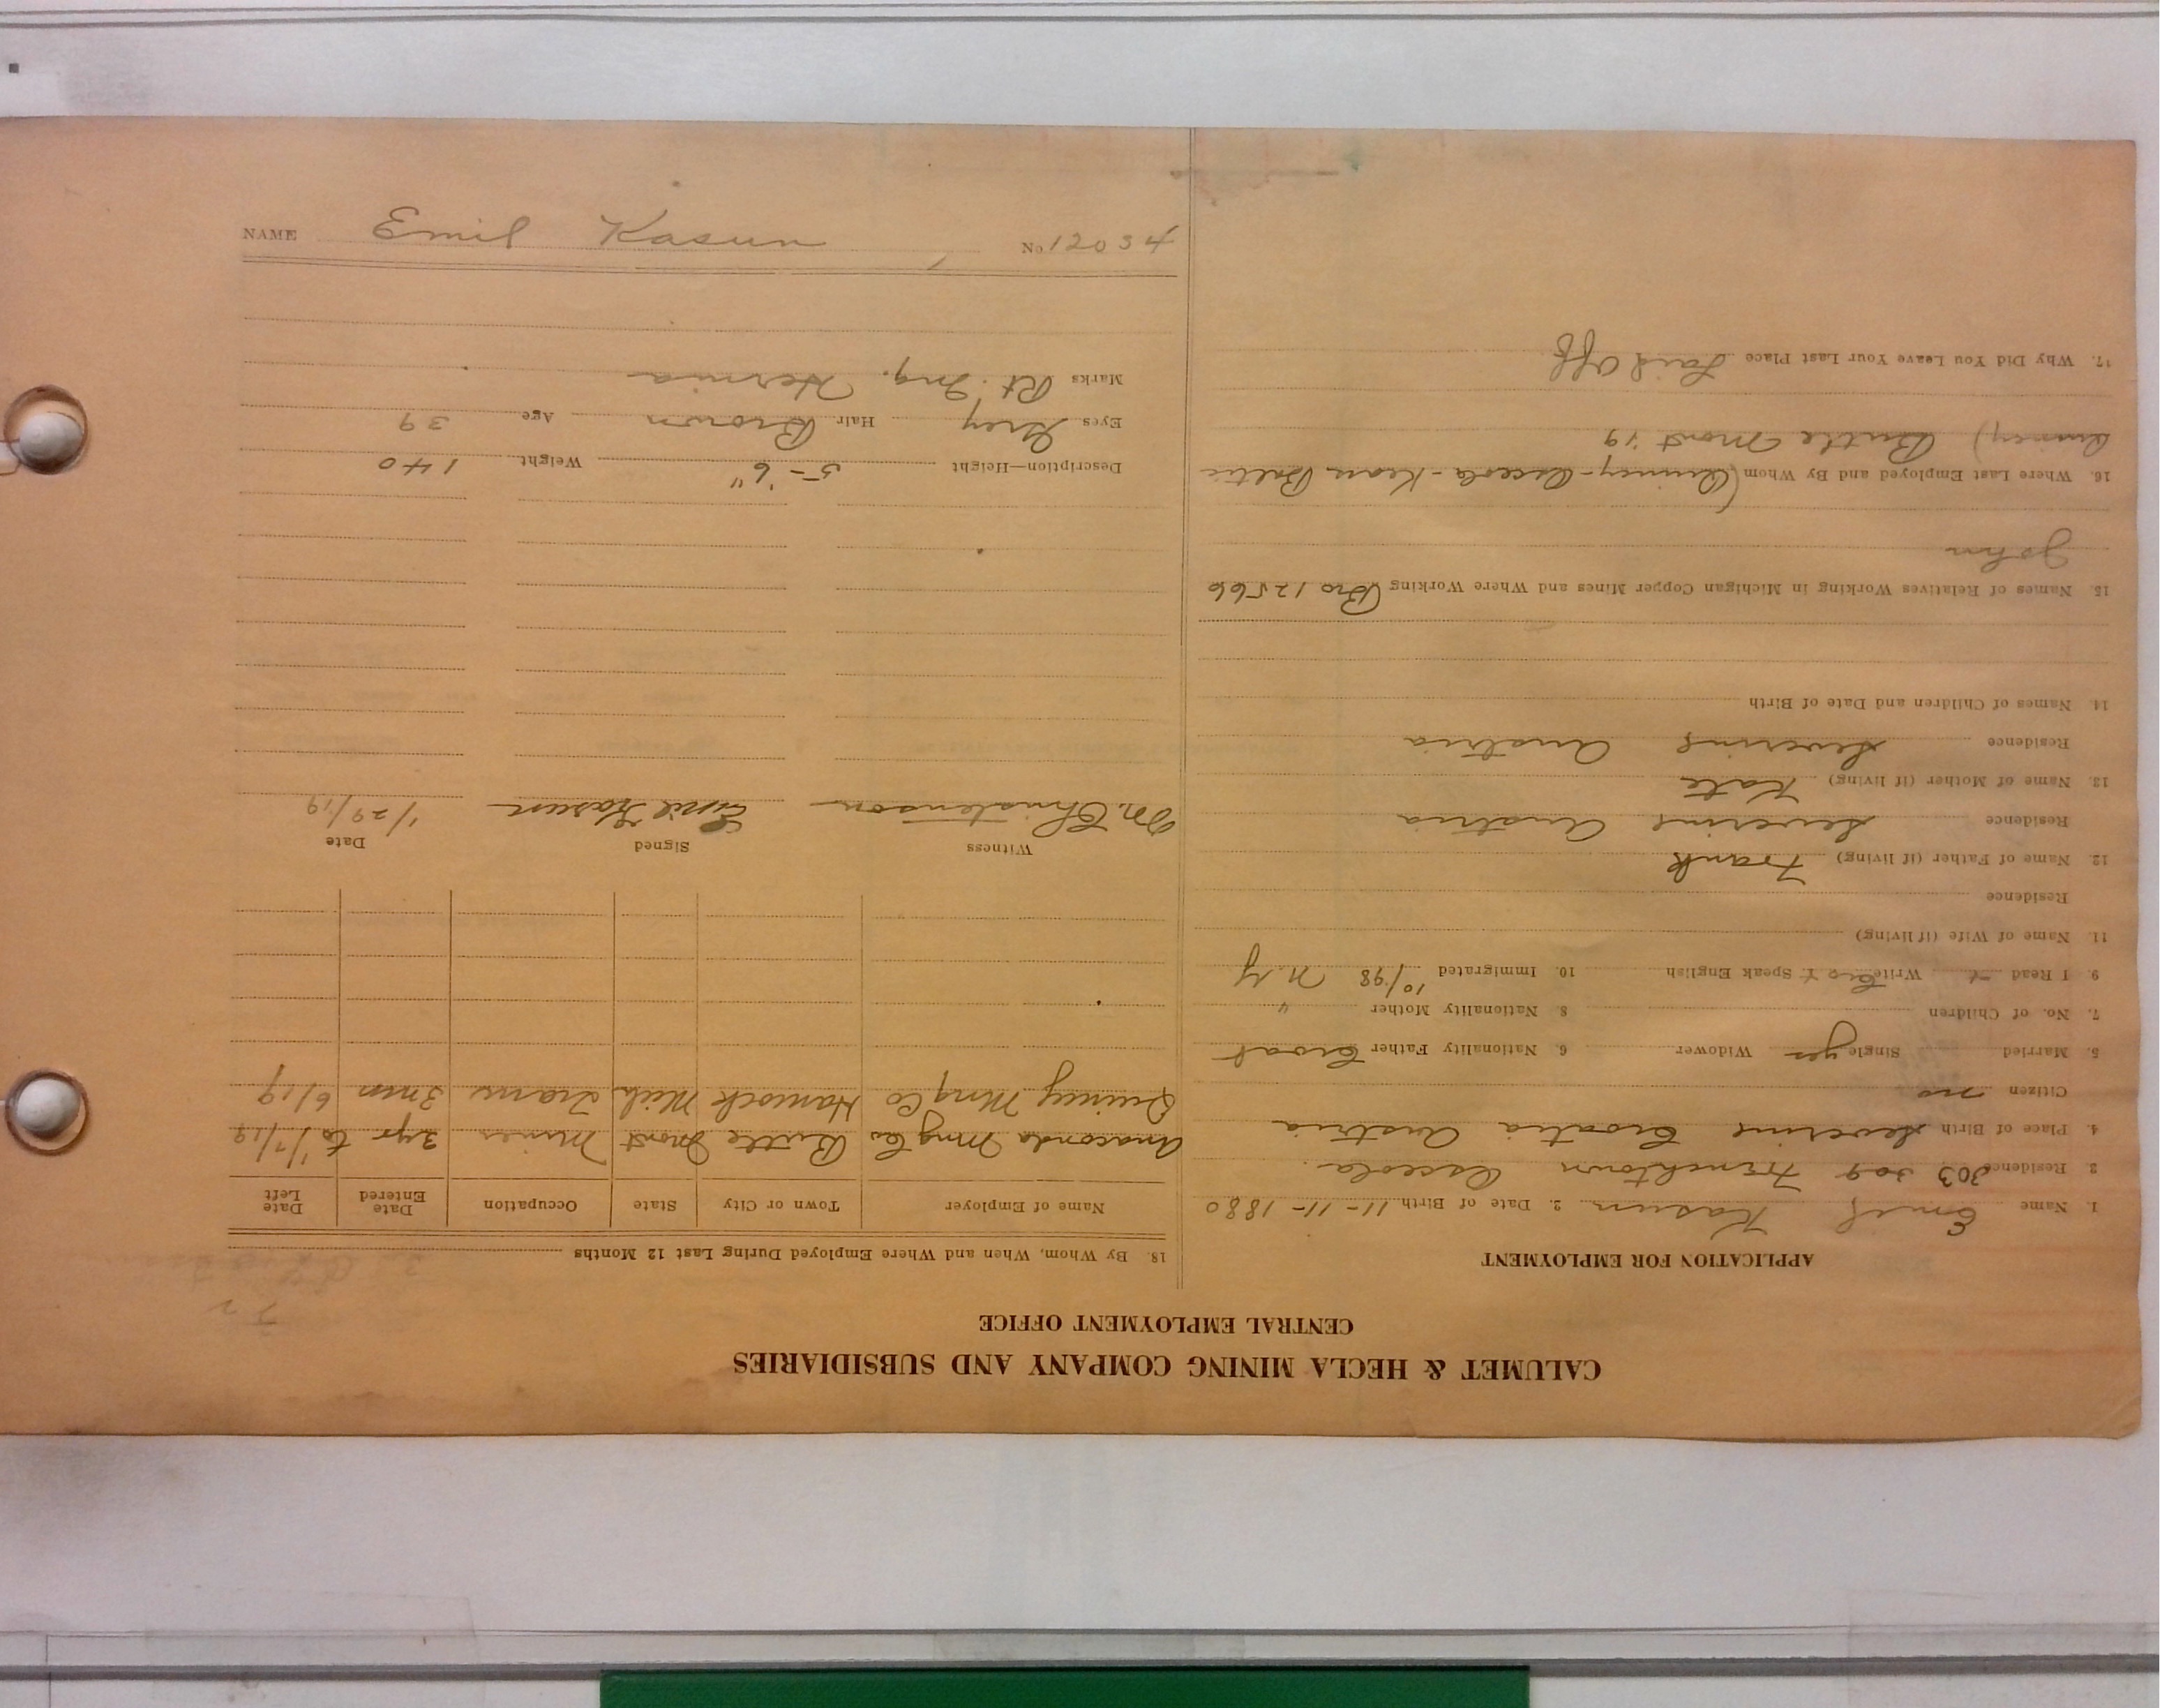 CALUMET & HECLA MINING COMPANY AND SUBSIDIARIES
CENTRAL EMPLOYMENT OFFICE
APPLICATION FOR EMPLOYMENT
1. Name Emil Kasun 2. Date of Birth 11-11-1880
3. Residence 303 Frenchtown Osceola
4. Place of Birth Severins Croatia Austria
Citizen no
5. Married Single yes Widower 6. Nationality Father Croat
7. No. of Children 8. Nationality Mother "
9. I Read Write Cro Speak English 10. Immigrated 10/98 N.Y
11. Name of Wife (if living)
Residence
12. Name of Father (if living) Frank
Residence Severins Austria
13. Name of Mother (if living) Kate
Residence Severins Austria
14. Names of Children and Date of Birth
15. Names of Relatives Working in Michigan Copper Mines and Where Working Bro 12566
John
16. Where Last Employed and By Whom (Quincy - Osceola - Kears Baltic
Quincy) Butte Mont '19
17. Why Did You Leave Your Last Place Laid Off
18. By Whom, When and Where Employed During Last 12 Months
Name of Employer Town or City State Occupation Date Entered Date Left
Anaconda Mng Co Butte Mont Miner 3 yr to 1/7/19
Quincy Mng Co Hancock Mich Tram 3 mos 6/19
Witness Signed Date
M. Christenson Emil Kasun 1/29/19
Description—Height 5-6" Weight 140
Eyes Grey Hair Brown Age 39
Marks Rt. Ing. Hernia
NAME Emil Kasun No 12034